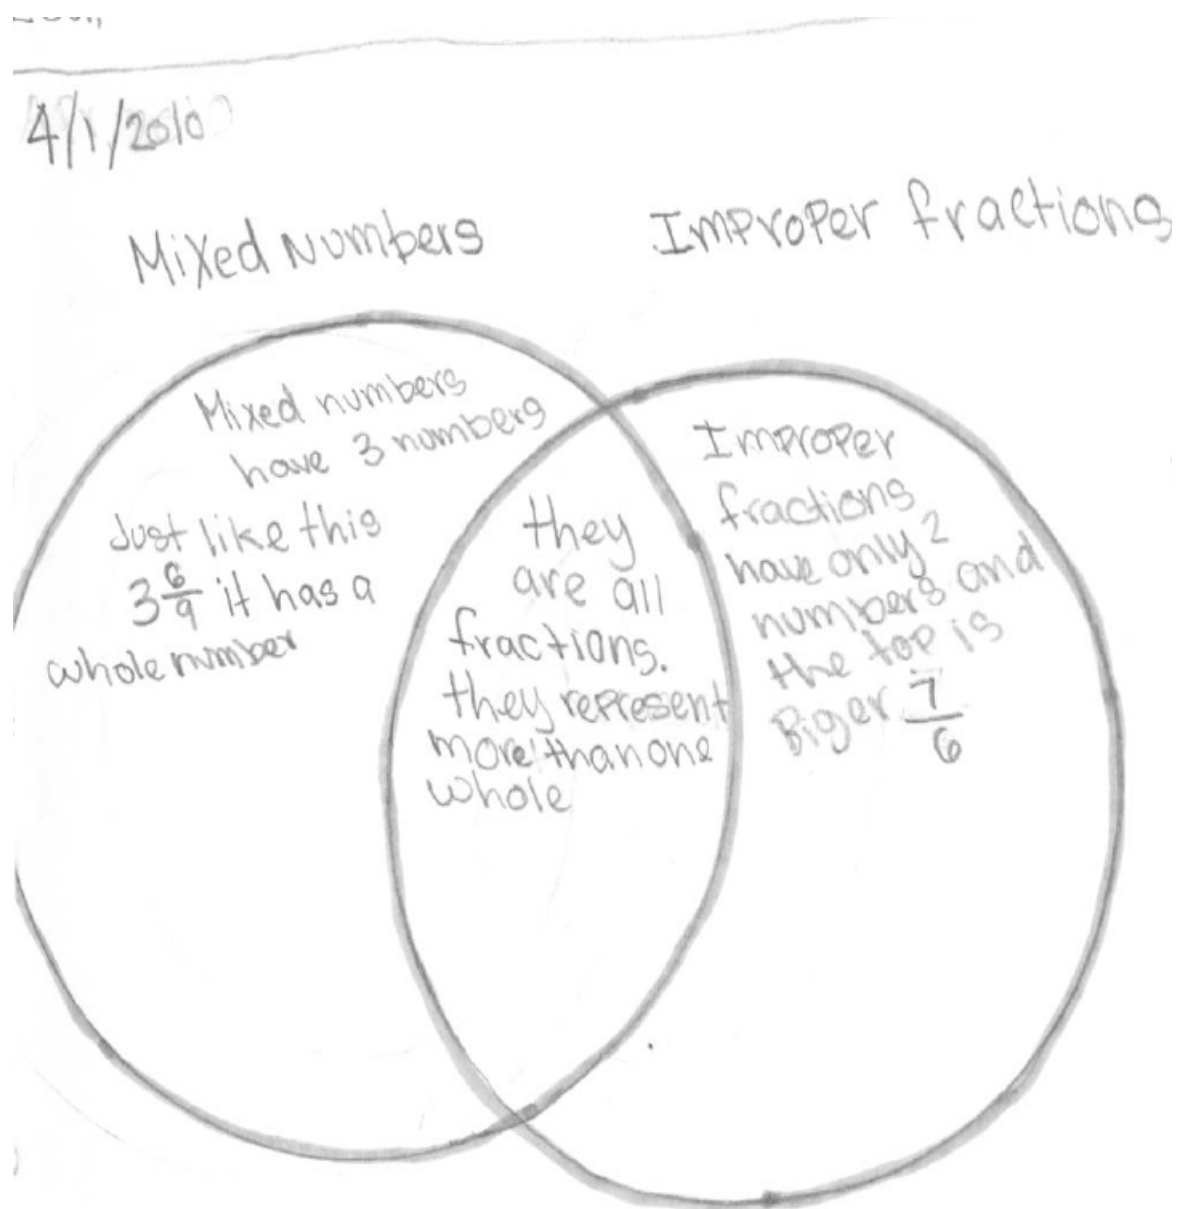 4/1/2010
Mixed Numbers
Improper fractions
Mixed numbers
have 3 numbers
Just like this
3 6/9 it has a
whole number
they
are all
fractions.
they represent
more than one
whole
Improper
fractions
have only 2
numbers and
the top is
Biger 7/6